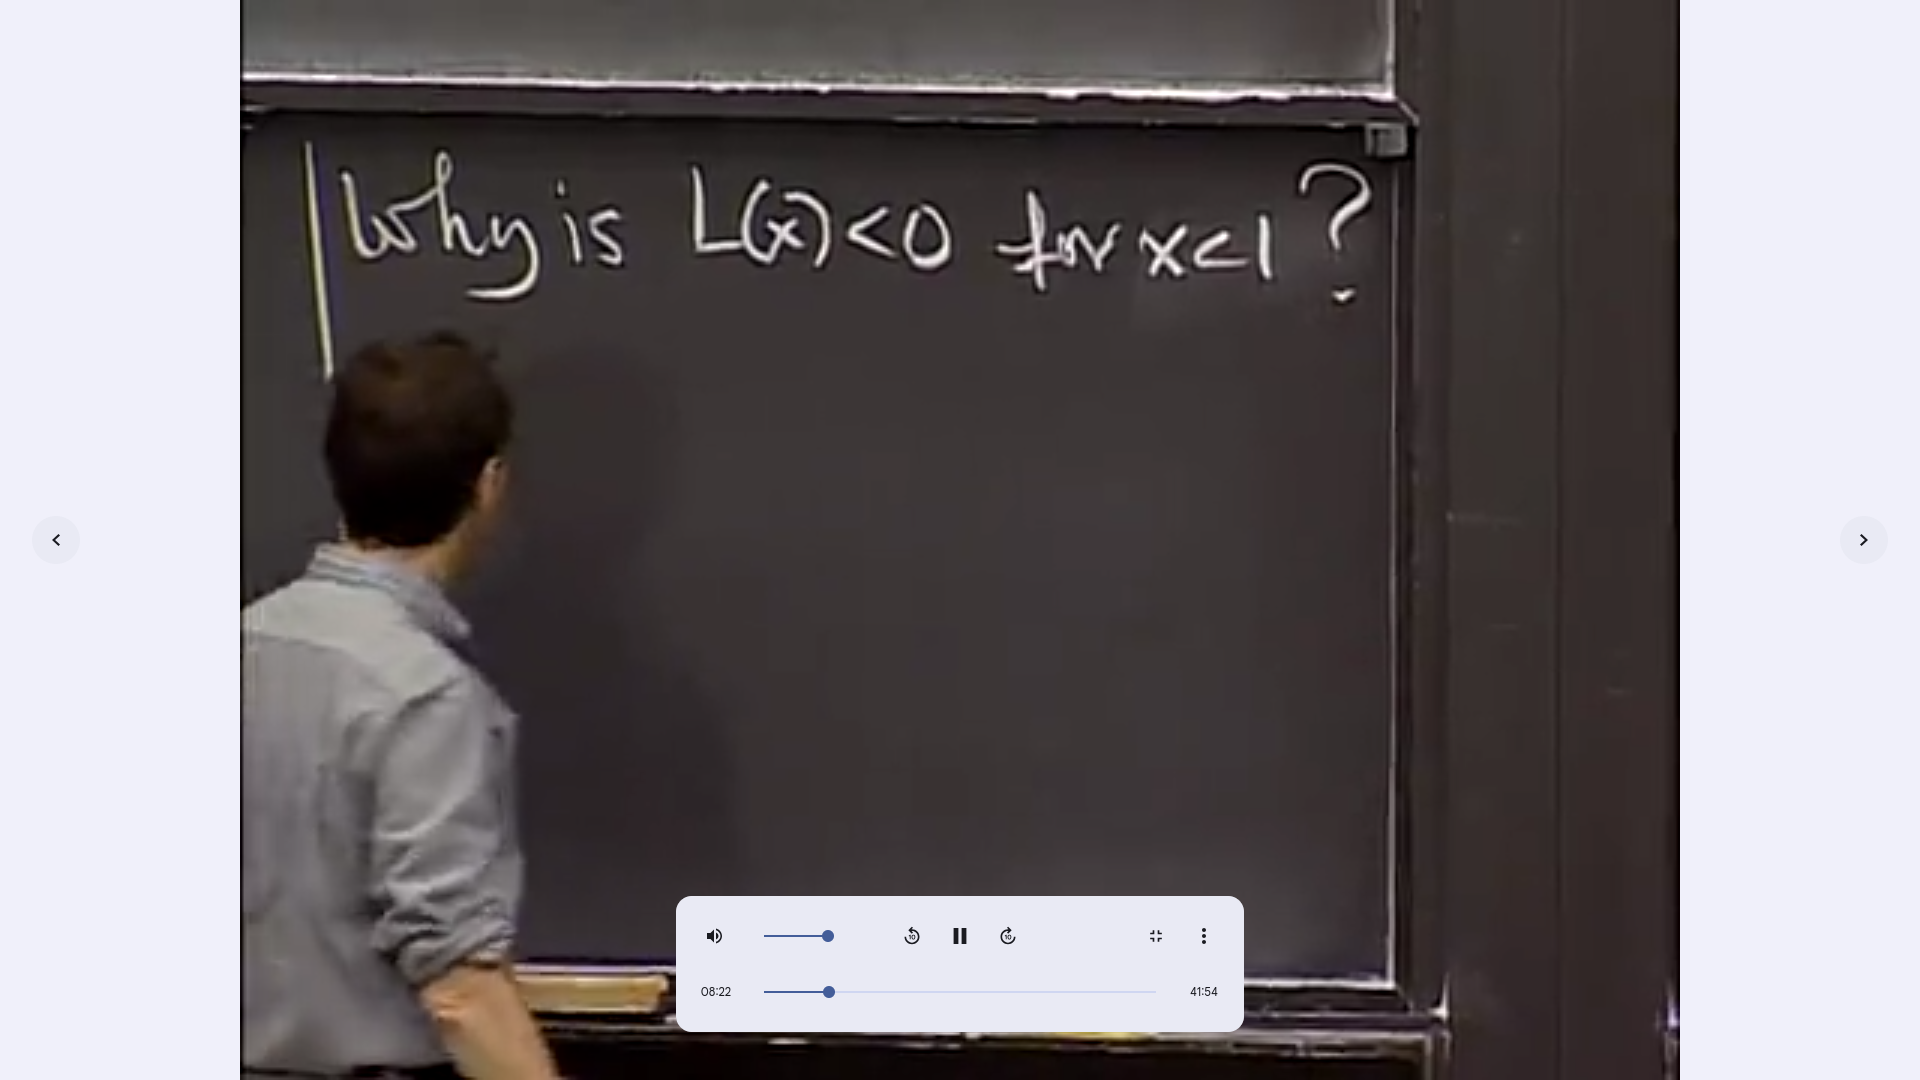 Why is L(x) < 0 for x < 1 ?
08:22
41:54